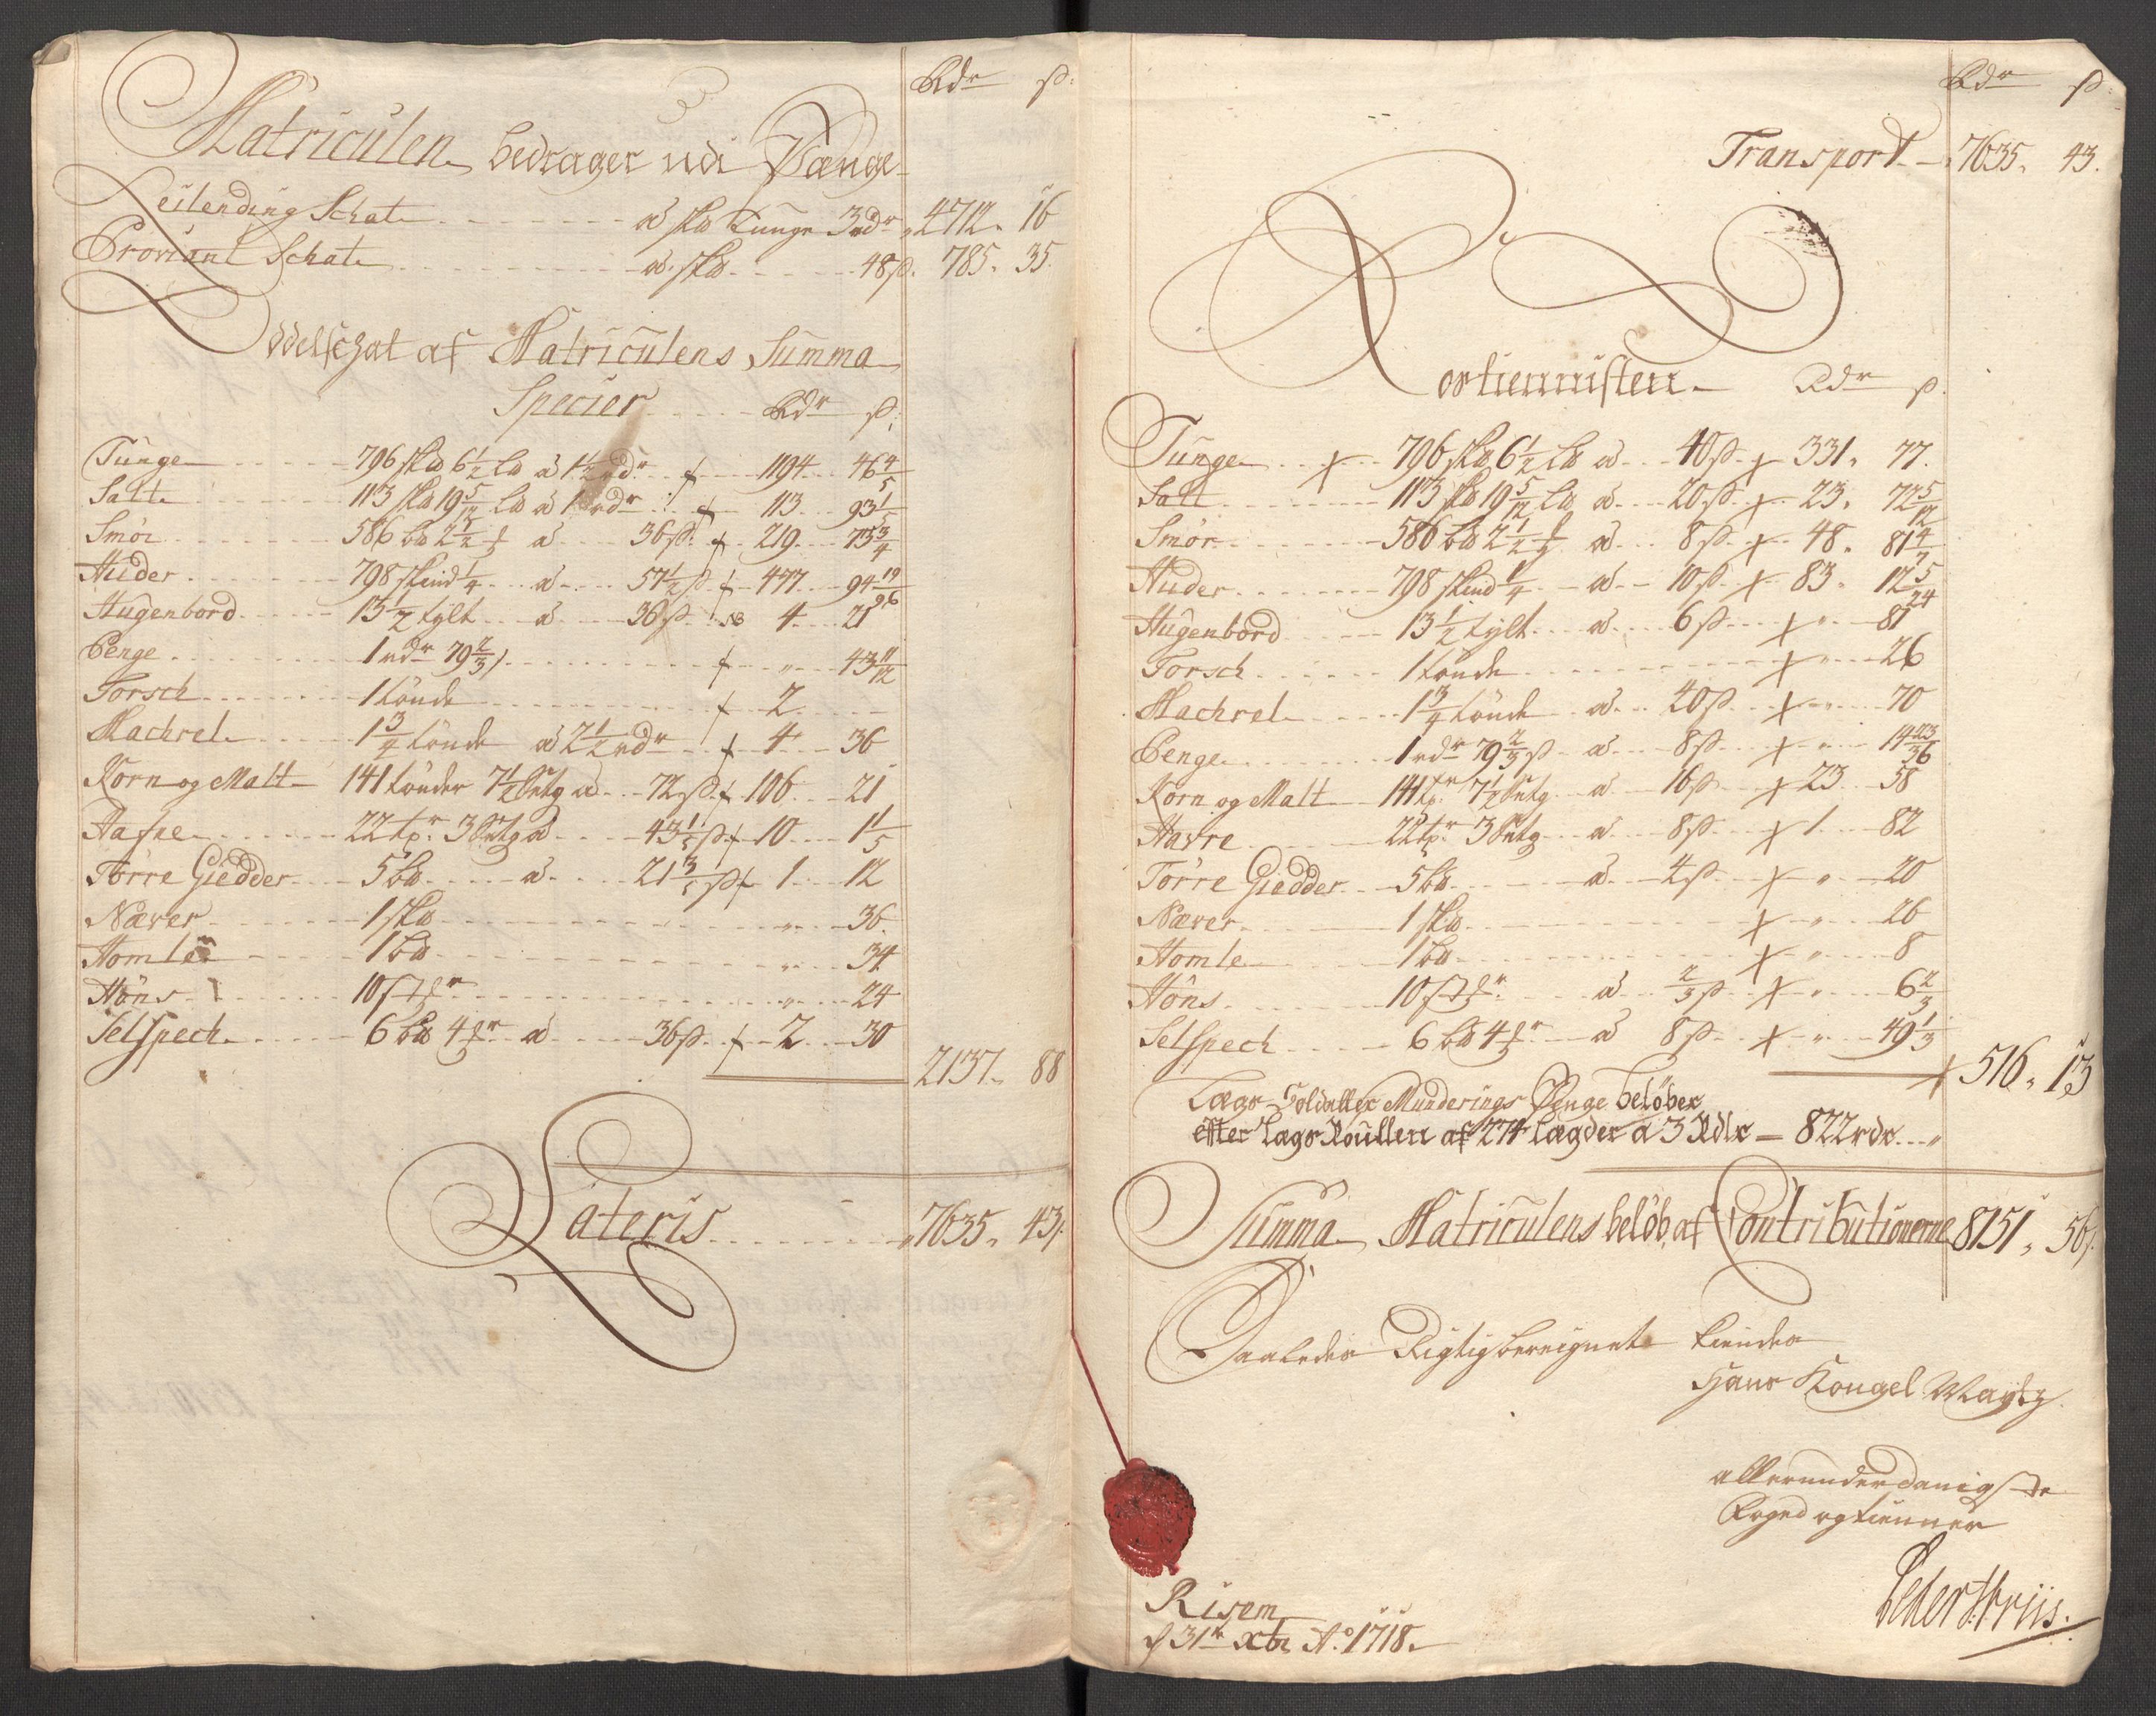 Rdr ß:
Matriculen bedrager udi Penge
Leilending Schat a sk℔ Tunge 3 rdr 4712. 16
Proviant Schat a sk℔ 48ß. 785. 35.
Oddelschat af Matriculens Summa
Specier Rdr ß:
Tunge 796 sk℔ 6½ L℔ a 1½ rdr 1194 46 4/5
Salt 113 sk℔ 19 5/12 L℔ a 1 rdr 113 93 1/5
Smör 586 b℔ 2½ a 36ß. 219 73 3/4
Huder 798 skind ¼ a 57½ß 477 94 19/96
Hugenbord 13½ tylt a 36ß 4 21
Penge 1 rdr 79 2/3 43 11/12
Torsch 1 tönde 2
Machrel 1¾ tönde a 2½ rdr 4 36
Korn og Malt 141 tönder 7½ a 72ß 106 21
Hafre 22 tr 3 a 43 1/5 ß 10 1 1/5
Törre Giedder 5 b℔ a 21 3/5 ß 1 12
Næver 1 sk℔ 36.
Homle 1 b℔ 34
Höns 10 24
Selspech 6 b℔ 4 a 36ß. 2 30
2137. 88
Lateris 7635. 43.
Rdr ß:
Transport 7635. 43.
Rostienisten Rdr ß.
Tunge 796 sk℔ 6½ L℔ a 40ß 331. 77.
Salt 113 sk℔ 19 5/12 L℔ a 20ß 23. 72 5/12
Smör 586 b℔ 2½ a 8ß 48. 81 4/7
Huder 798 skind ¼ a 10ß 83. 12 5/24
Hugenbord 13½ tylt a 6ß 81
Torsch 1 tönde 26
Machrel 1¾ tönde a 40ß 70
Penge 1 rdr 79 2/3 ß a 8ß 14 23/36
Korn og Malt 141 tr 7½ a 16ß 23 58
Havre 22 tr 3 a 8ß 1 82
Törre Giedder 5 b℔ a 4ß 20
Næver 1 sk℔ 26
Homle 1 b℔ 8
Höns 10 a 2/3 ß 6 2/3
Selspech 6 b℔ 4 a 8ß 49 1/3
516. 13
Lægs Soldatter Munderings Penge belöber
efter Lægs Roullen af 274 lægder a 3 Rdlr — 822 rdr
Summa Matriculens belöb af Contributionerne 8151. 56.
Saaledes Rigtig beregnet kiendes
Hans Kongel Maysts
allerunderdanigste
Foged og tienner
Peder Friis.
Risem
d 31te xbr Ao 1718.